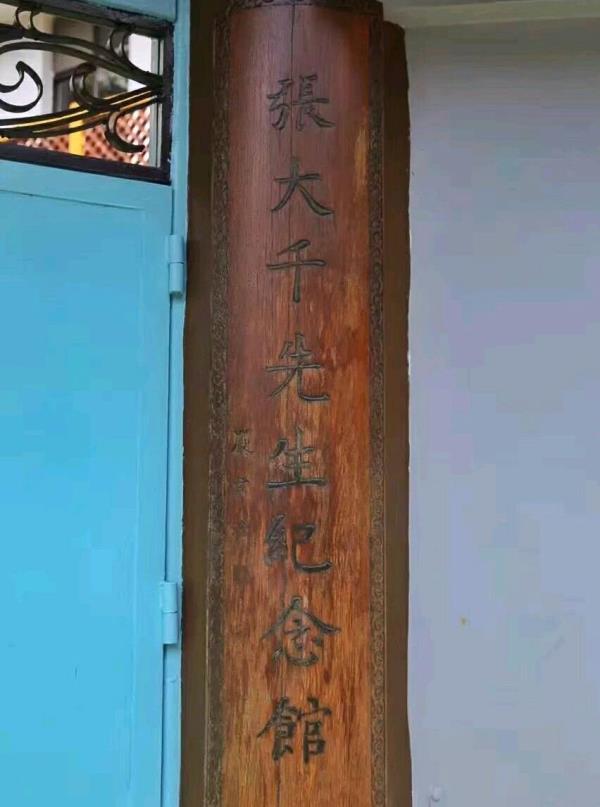 張大千先生紀念館